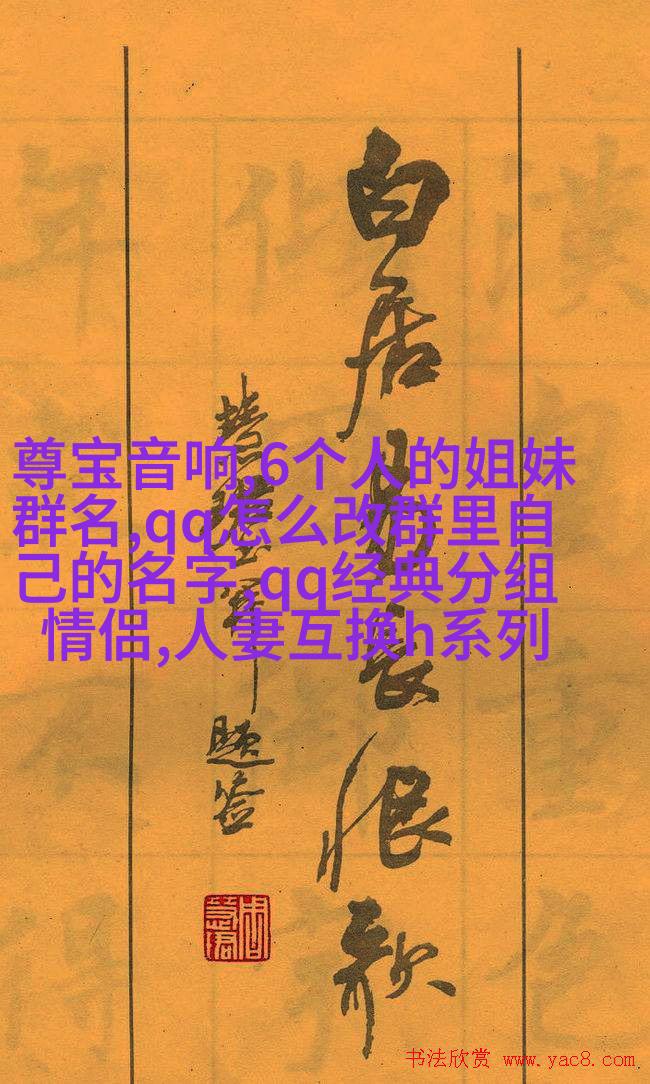 白居易長恨歌
题签
尊宝音响,6个人的姐妹
群名,qq怎么改群里自
己的名字,qq经典分组
情侣,人妻互换h系列
书法欣赏 www.yac8.com